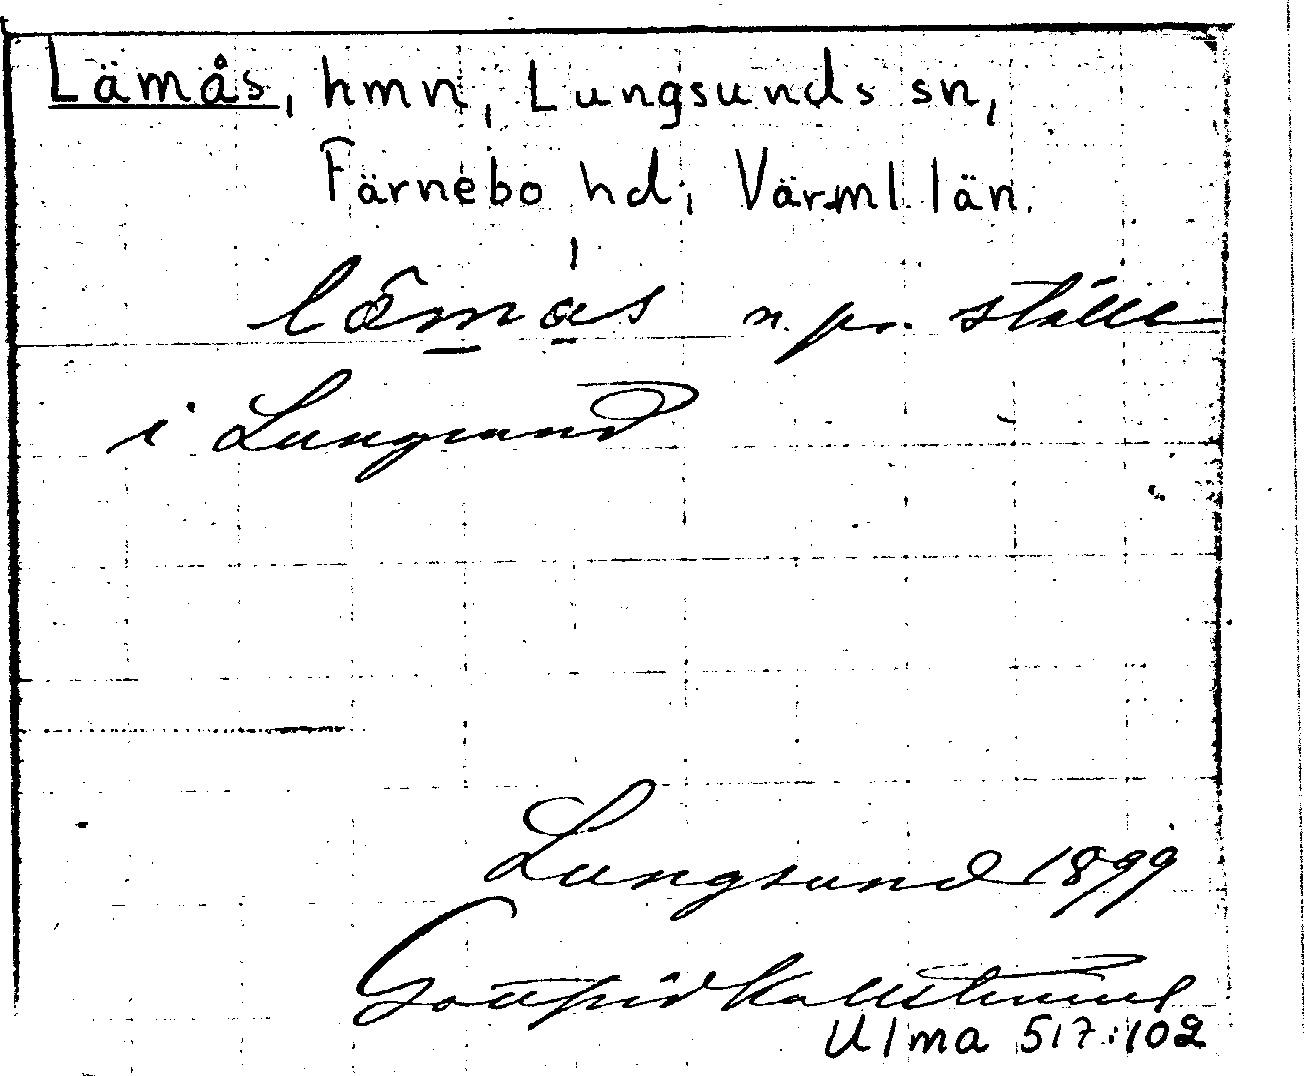 Lämås, hmn, Lungsunds sn,
Färnebo hd, Värml. län.
læmås n. pr. ställe
i Lungsund
Lungsund 1899
Gottfrid Kallstenius
Ulma 517:102